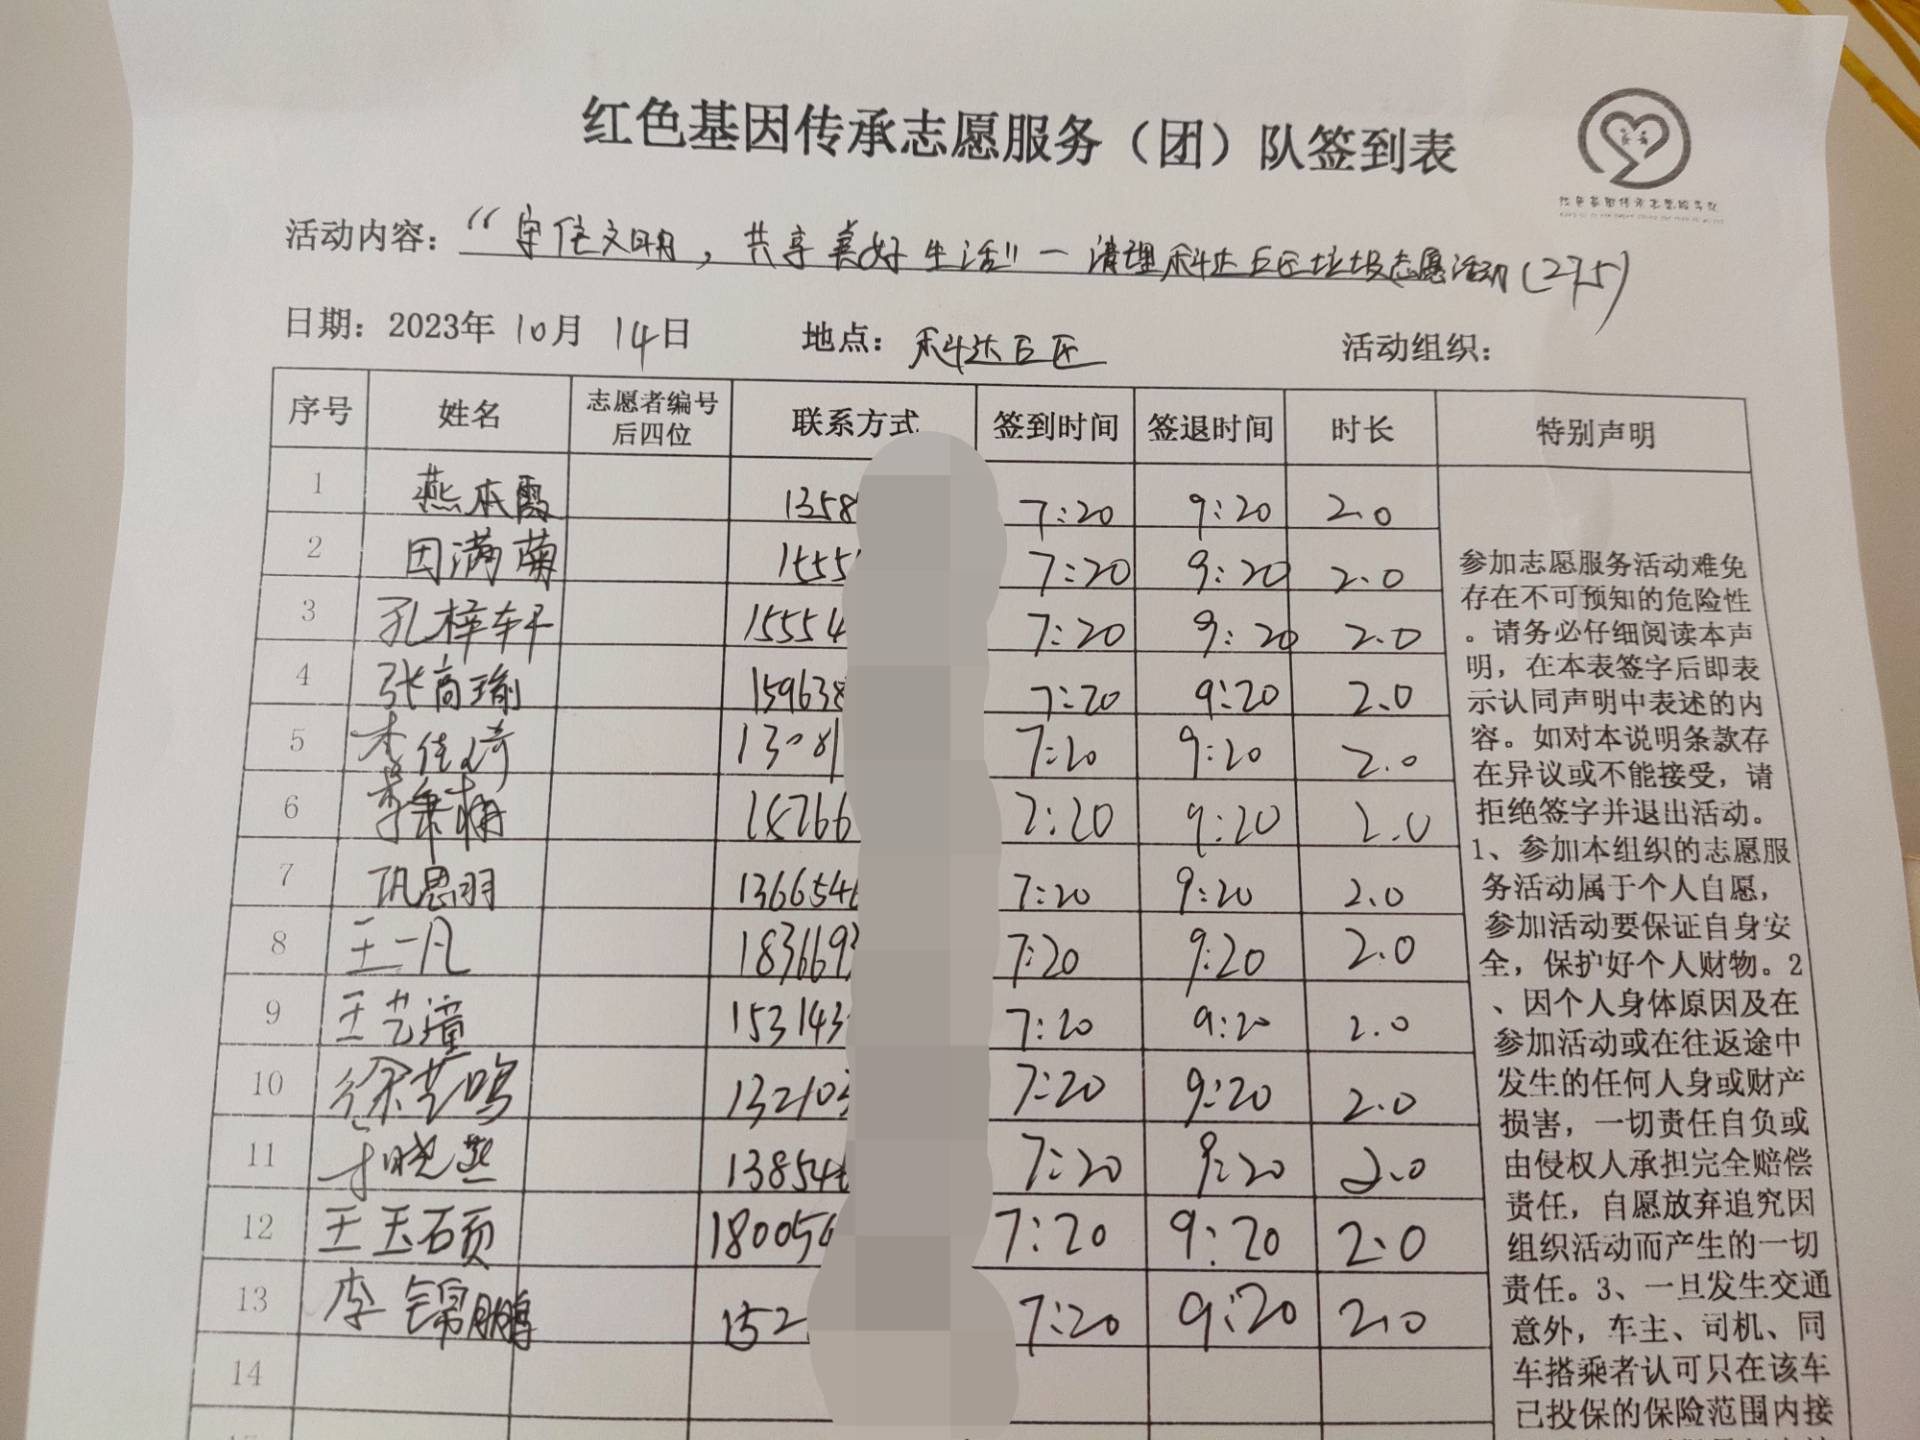 红色基因传承志愿服务（团）队签到表
活动内容：“守住文明，共享美好生活”一清理科达巨区垃圾志愿活动(275)
日期：2023年 10月 14日 地点：科达巨区 活动组织：
序号 姓名 志愿者编号后四位 联系方式 签到时间 签退时间 时长 特别声明
1 燕本霞 1358 7:20 9:20 2.0
2 因满菊 1555 7:20 9:20 2.0
3 孔梓轩 15554 7:20 9:20 2.0
4 张高瑜 159638 7:20 9:20 2.0
5 李佳琦 1308 7:20 9:20 2.0
6 15266 7:20 9:20 2.0
7 巩思羽 1366546 7:20 9:20 2.0
8 王一凡 183669 7:20 9:20 2.0
9 王艺潼 153143 7:20 9:20 2.0
10 徐艺鸣 132103 7:20 9:20 2.0
11 晓燕 13854 7:20 9:20 2.0
12 王玉硕 180056 7:20 9:20 2.0
13 李锦鹏 152 7:20 9:20 2.0
14
参加志愿服务活动难免
存在不可预知的危险性
。请务必仔细阅读本声
明，在本表签字后即表
示认同声明中表述的内
容。如对本说明条款存
在异议或不能接受，请
拒绝签字并退出活动。
1、参加本组织的志愿服
务活动属于个人自愿，
参加活动要保证自身安
全，保护好个人财物。2
、因个人身体原因及在
参加活动或在往返途中
发生的任何人身或财产
损害，一切责任自负或
由侵权人承担完全赔偿
责任，自愿放弃追究因
组织活动而产生的一切
责任。3、一旦发生交通
意外，车主、司机、同
车搭乘者认可只在该车
已投保的保险范围内接